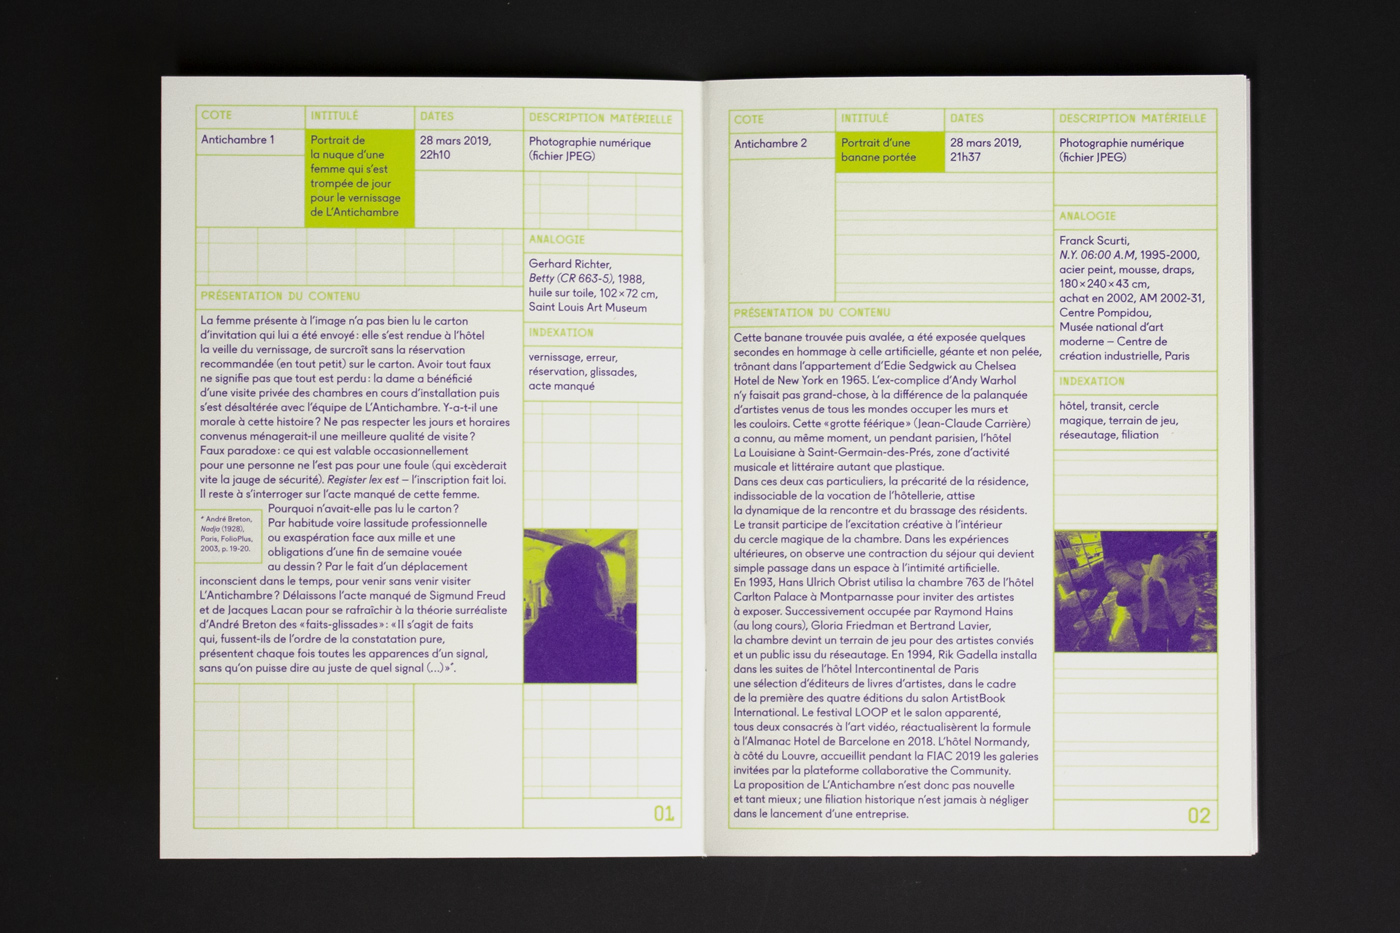 COTE
Antichambre 1
INTITULÉ
Portrait de
la nuque d'une
femme qui s'est
trompée de jour
pour le vernissage
de L'Antichambre
DATES
28 mars 2019,
22h10
DESCRIPTION MATÉRIELLE
Photographie numérique
(fichier JPEG)
ANALOGIE
Gerhard Richter,
Betty (CR 663-5), 1988,
huile sur toile, 102 × 72 cm,
Saint Louis Art Museum
INDEXATION
vernissage, erreur,
réservation, glissades,
acte manqué
PRÉSENTATION DU CONTENU
La femme présente à l'image n'a pas bien lu le carton
d'invitation qui lui a été envoyé : elle s'est rendue à l'hôtel
la veille du vernissage, de surcroît sans la réservation
recommandée (en tout petit) sur le carton. Avoir tout faux
ne signifie pas que tout est perdu : la dame a bénéficié
d'une visite privée des chambres en cours d'installation puis
s'est désaltérée avec l'équipe de L'Antichambre. Y-a-t-il une
morale à cette histoire ? Ne pas respecter les jours et horaires
convenus ménagerait-il une meilleure qualité de visite ?
Faux paradoxe : ce qui est valable occasionnellement
pour une personne ne l'est pas pour une foule (qui excèderait
vite la jauge de sécurité). Register lex est – l'inscription fait loi.
Il reste à s'interroger sur l'acte manqué de cette femme.
Pourquoi n'avait-elle pas lu le carton ?
Par habitude voire lassitude professionnelle
ou exaspération face aux mille et une
obligations d'une fin de semaine vouée
au dessin ? Par le fait d'un déplacement
inconscient dans le temps, pour venir sans venir visiter
L'Antichambre ? Délaissons l'acte manqué de Sigmund Freud
et de Jacques Lacan pour se rafraîchir à la théorie surréaliste
d'André Breton des « faits-glissades » : « Il s'agit de faits
qui, fussent-ils de l'ordre de la constatation pure,
présentent chaque fois toutes les apparences d'un signal,
sans qu'on puisse dire au juste de quel signal (…) »*.
* André Breton,
Nadja (1928),
Paris, FolioPlus,
2003, p. 19-20.
01
COTE
Antichambre 2
INTITULÉ
Portrait d'une
banane portée
DATES
28 mars 2019,
21h37
DESCRIPTION MATÉRIELLE
Photographie numérique
(fichier JPEG)
ANALOGIE
Franck Scurti,
N.Y. 06:00 A.M, 1995-2000,
acier peint, mousse, draps,
180 × 240 × 43 cm,
achat en 2002, AM 2002-31,
Centre Pompidou,
Musée national d'art
moderne – Centre de
création industrielle, Paris
INDEXATION
hôtel, transit, cercle
magique, terrain de jeu,
réseautage, filiation
PRÉSENTATION DU CONTENU
Cette banane trouvée puis avalée, a été exposée quelques
secondes en hommage à celle artificielle, géante et non pelée,
trônant dans l'appartement d'Edie Sedgwick au Chelsea
Hotel de New York en 1965. L'ex-complice d'Andy Warhol
n'y faisait pas grand-chose, à la différence de la palanquée
d'artistes venus de tous les mondes occuper les murs et
les couloirs. Cette « grotte féérique » (Jean-Claude Carrière)
a connu, au même moment, un pendant parisien, l'hôtel
La Louisiane à Saint-Germain-des-Prés, zone d'activité
musicale et littéraire autant que plastique.
Dans ces deux cas particuliers, la précarité de la résidence,
indissociable de la vocation de l'hôtellerie, attise
la dynamique de la rencontre et du brassage des résidents.
Le transit participe de l'excitation créative à l'intérieur
du cercle magique de la chambre. Dans les expériences
ultérieures, on observe une contraction du séjour qui devient
simple passage dans un espace à l'intimité artificielle.
En 1993, Hans Ulrich Obrist utilisa la chambre 763 de l'hôtel
Carlton Palace à Montparnasse pour inviter des artistes
à exposer. Successivement occupée par Raymond Hains
(au long cours), Gloria Friedman et Bertrand Lavier,
la chambre devint un terrain de jeu pour des artistes conviés
et un public issu du réseautage. En 1994, Rik Gadella installa
dans les suites de l'hôtel Intercontinental de Paris
une sélection d'éditeurs de livres d'artistes, dans le cadre
de la première des quatre éditions du salon ArtistBook
International. Le festival LOOP et le salon apparenté,
tous deux consacrés à l'art vidéo, réactualisèrent la formule
à l'Almanac Hotel de Barcelone en 2018. L'hôtel Normandy,
à côté du Louvre, accueillit pendant la FIAC 2019 les galeries
invitées par la plateforme collaborative the Community.
La proposition de L'Antichambre n'est donc pas nouvelle
et tant mieux ; une filiation historique n'est jamais à négliger
dans le lancement d'une entreprise.
02